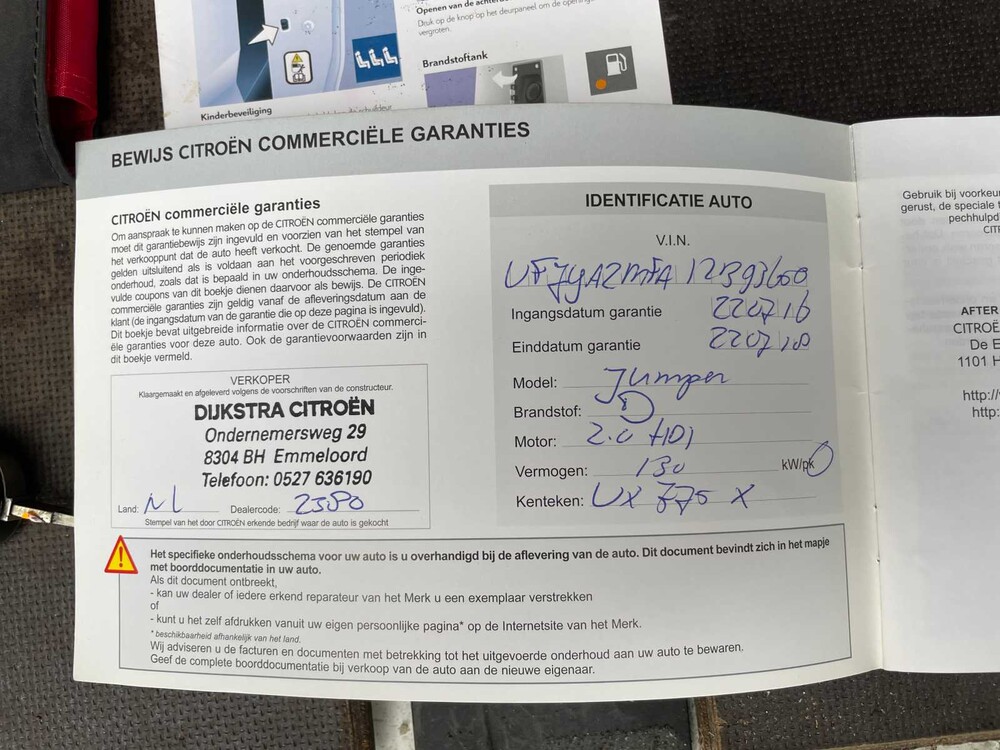 Openen van de achterde
Druk op de knop op het deurpaneel om de opening
vergroten.
Brandstoftank
Kinderbeveiliging
BEWIJS CITROËN COMMERCIËLE GARANTIES
CITROËN commerciële garanties
Om aanspraak te kunnen maken op de CITROËN commerciële garanties
moet dit garantiebewijs zijn ingevuld en voorzien van het stempel van
het verkooppunt dat de auto heeft verkocht. De genoemde garanties
gelden uitsluitend als is voldaan aan het voorgeschreven periodiek
onderhoud, zoals dat is bepaald in uw onderhoudsschema. De inge-
vulde coupons van dit boekje dienen daarvoor als bewijs. De CITROËN
commerciële garanties zijn geldig vanaf de afleveringsdatum aan de
klant (de ingangsdatum van de garantie die op deze pagina is ingevuld).
Dit boekje bevat uitgebreide informatie over de CITROËN commerci-
ële garanties voor deze auto. Ook de garantievoorwaarden zijn in
dit boekje vermeld.
VERKOPER
Klaargemaakt en afgeleverd volgens de voorschriften van de constructeur.
DIJKSTRA CITROËN
Ondernemersweg 29
8304 BH Emmeloord
Telefoon: 0527 636190
Land: NL Dealercode: 2380
Stempel van het door CITROËN erkende bedrijf waar de auto is gekocht
IDENTIFICATIE AUTO
V.I.N.
VF7YAZMFA 12B93600
Ingangsdatum garantie 220716
Einddatum garantie 220718
Model: Jumper
Brandstof: D
Motor: 2.0 HDI
Vermogen: 130 kW/pk
Kenteken: VX 775 X
Het specifieke onderhoudsschema voor uw auto is u overhandigd bij de aflevering van de auto. Dit document bevindt zich in het mapje
met boorddocumentatie in uw auto.
Als dit document ontbreekt,
- kan uw dealer of iedere erkend reparateur van het Merk u een exemplaar verstrekken
of
- kunt u het zelf afdrukken vanuit uw eigen persoonlijke pagina* op de Internetsite van het Merk.
* beschikbaarheid afhankelijk van het land.
Wij adviseren u de facturen en documenten met betrekking tot het uitgevoerde onderhoud aan uw auto te bewaren.
Geef de complete boorddocumentatie bij verkoop van de auto aan de nieuwe eigenaar.
Gebruik bij voorkeu
gerust, de speciale t
pechhulpd
CIT
AFTER
CITROË
De E
1101 H
http://
http: